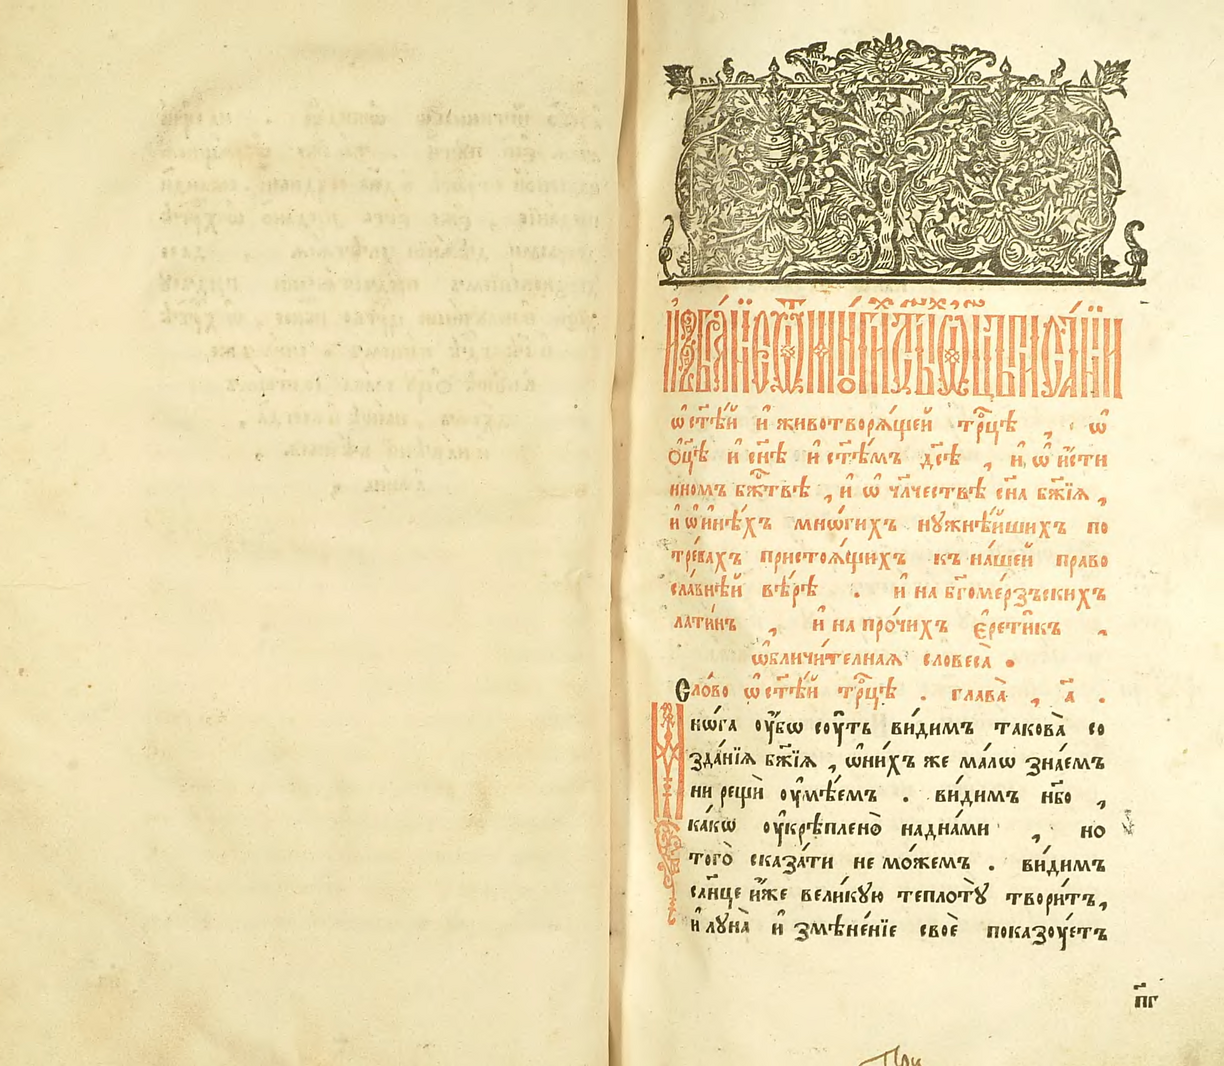 И҆збра́нїе ѿ мно́гихъ ст҃ы́хъ ѻ҆ц҃ъ писа́нїи
ѡ҆ ст҃ѣ́й и҆ животворѧ́щей трⷪ҇цѣ , ѡ҆
ѻ҆ц҃ѣ и҆ сн҃ѣ и҆ ст҃ѣ́мъ дс҃ѣ , и҆, ѡ҆ и҆́сти
нномъ бжⷭ҇твѣ , и҆ ѡ҆ чл҃чествѣ сн҃а бж҃їѧ ,
и҆ ѡ҆ и҆нѣ́хъ мнѡ́гихъ нꙋжнѣ́йшихъ по
тре́бахъ пристоѧ́щихъ къ на́шей право
сла́внѣй вѣ́рѣ . и҆ на бг҃оме́рзъскихъ
лати́нъ , и҆ на про́чихъ є҆рети́къ ,
ѡ҆бличи́телнаѧ словеса̀ .
Сло́во ѡ҆ ст҃ѣ́й трⷪ҇цѣ . глава̀ , а҃ .
Мнѡ́га ᲂу҆́бѡ сꙋ́ть ви́димъ такова̀ со
зда́нїѧ бж҃їѧ , ѡ҆ ни́хъ же ма́лѡ зна́емъ
ни рещѝ ᲂу҆мѣ́емъ . ви́димъ нб҃о ,
ка́кѡ ᲂу҆крѣплено̀ над на́ми , но
того̀ сказа́ти не мо́жемъ . ви́димъ
сл҃нце и҆́же вели́кꙋю теплотꙋ̀ твори́тъ,
и҆ лꙋна̀ и҆змѣне́нїе своѐ показꙋ́етъ
п҃г
При